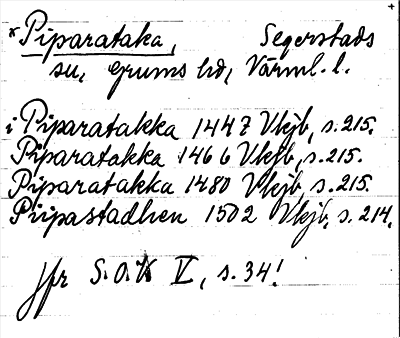 *Piparataka, Segerstads
sn, Grums hd, Värml. l.
i Piparatakka 1447 Vkjb, s. 215.
Piparatakka 1466 Vkjb, s. 215.
Piparatakka 1480 Vkjb, s. 215.
Piipastadhen 1502 Vkjb, s. 214.
Jfr S.O.V. V, s. 34!